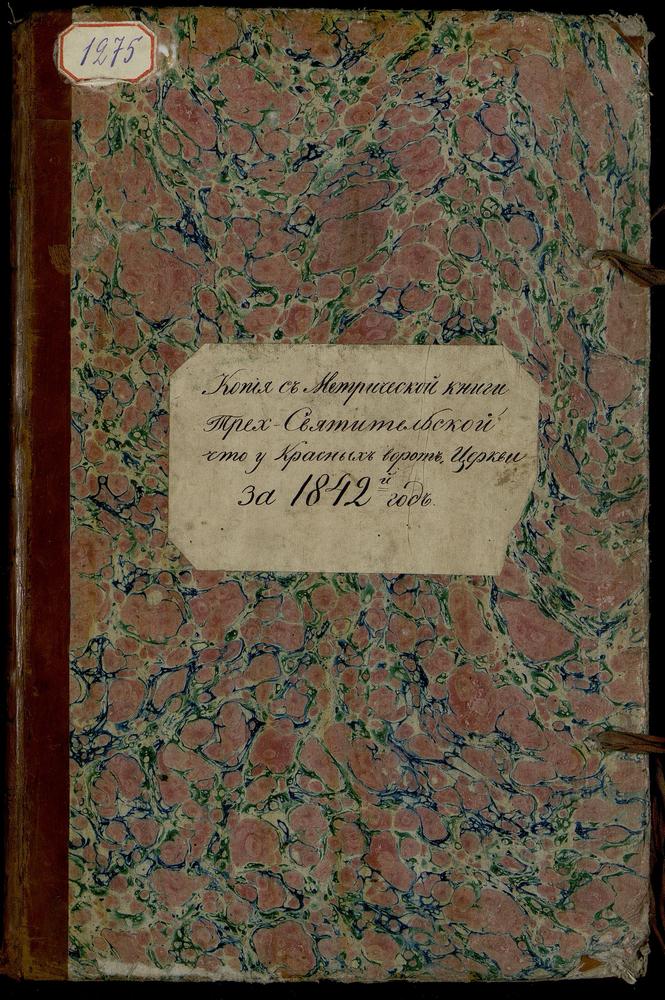 1275
Копія съ Метрической книги
Трех-Святительской
что у Красныхъ воротъ, Церкви
За 1842й годъ.